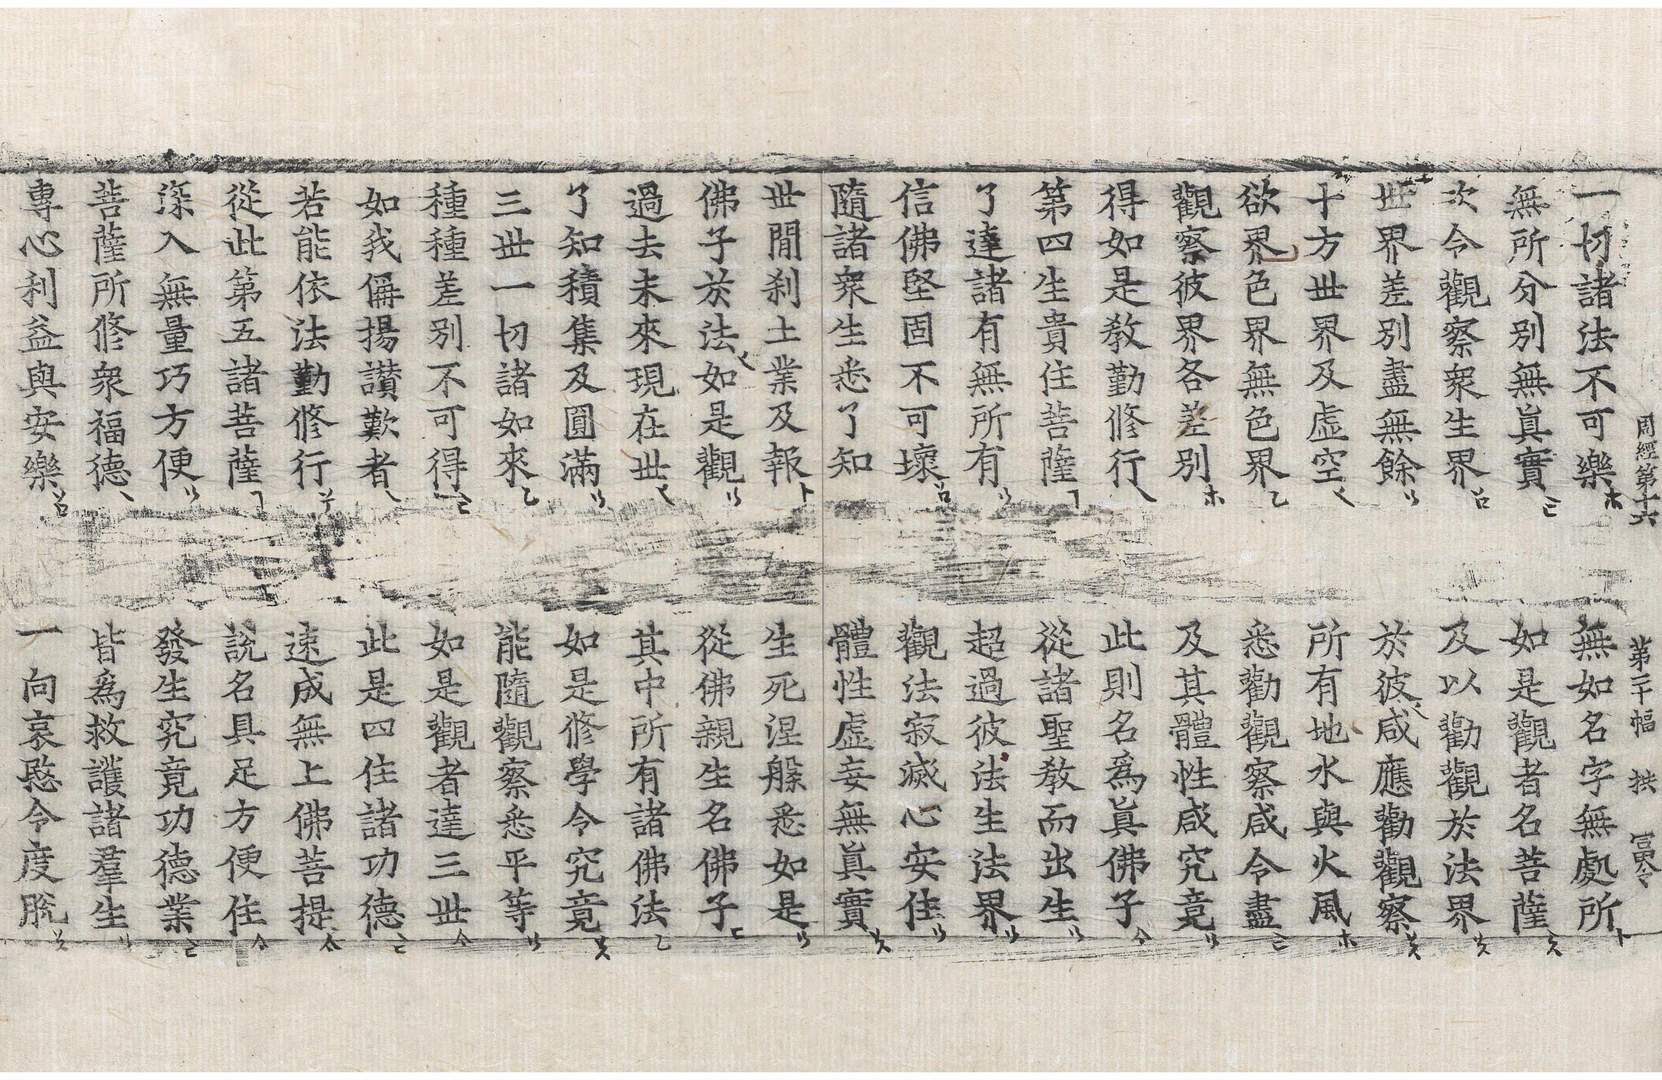 周經第十六 第二十幅 拱
一切諸法不可樂 無如名字無處所
無所分別無眞實 如是觀者名菩薩
次令觀察衆生界 及以勸觀於法界
世界差別盡無餘 於彼咸應勸觀察
十方世界及虛空 所有地水與火風
欲界色界無色界 悉勸觀察咸令盡
觀察彼界各差別 及其體性咸究竟
得如是教勤修行 此則名爲眞佛子
第四生貴住菩薩 從諸聖教而出生
了達諸有無所有 超過彼法生法界
信佛堅固不可壞 觀法寂滅心安住
隨諸衆生悉了知 體性虛妄無眞實
世間刹土業及報 生死涅槃悉如是
佛子於法如是觀 從佛親生名佛子
過去未來現在世 其中所有諸佛法
了知積集及圓滿 如是修學令究竟
三世一切諸如來 能隨觀察悉平等
種種差別不可得 如是觀者達三世
如我偁揚讃歎者 此是四住諸功德
若能依法勤修行 速成無上佛菩提
從此第五諸菩薩 說名具足方便住
深入無量巧方便 發生究竟功德業
菩薩所修衆福德 皆爲救護諸羣生
專心利益與安樂 一向哀愍令度脫